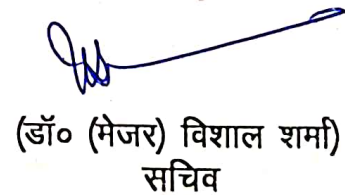 (डॉ० (मेजर) विशाल शर्मा)
सचिव